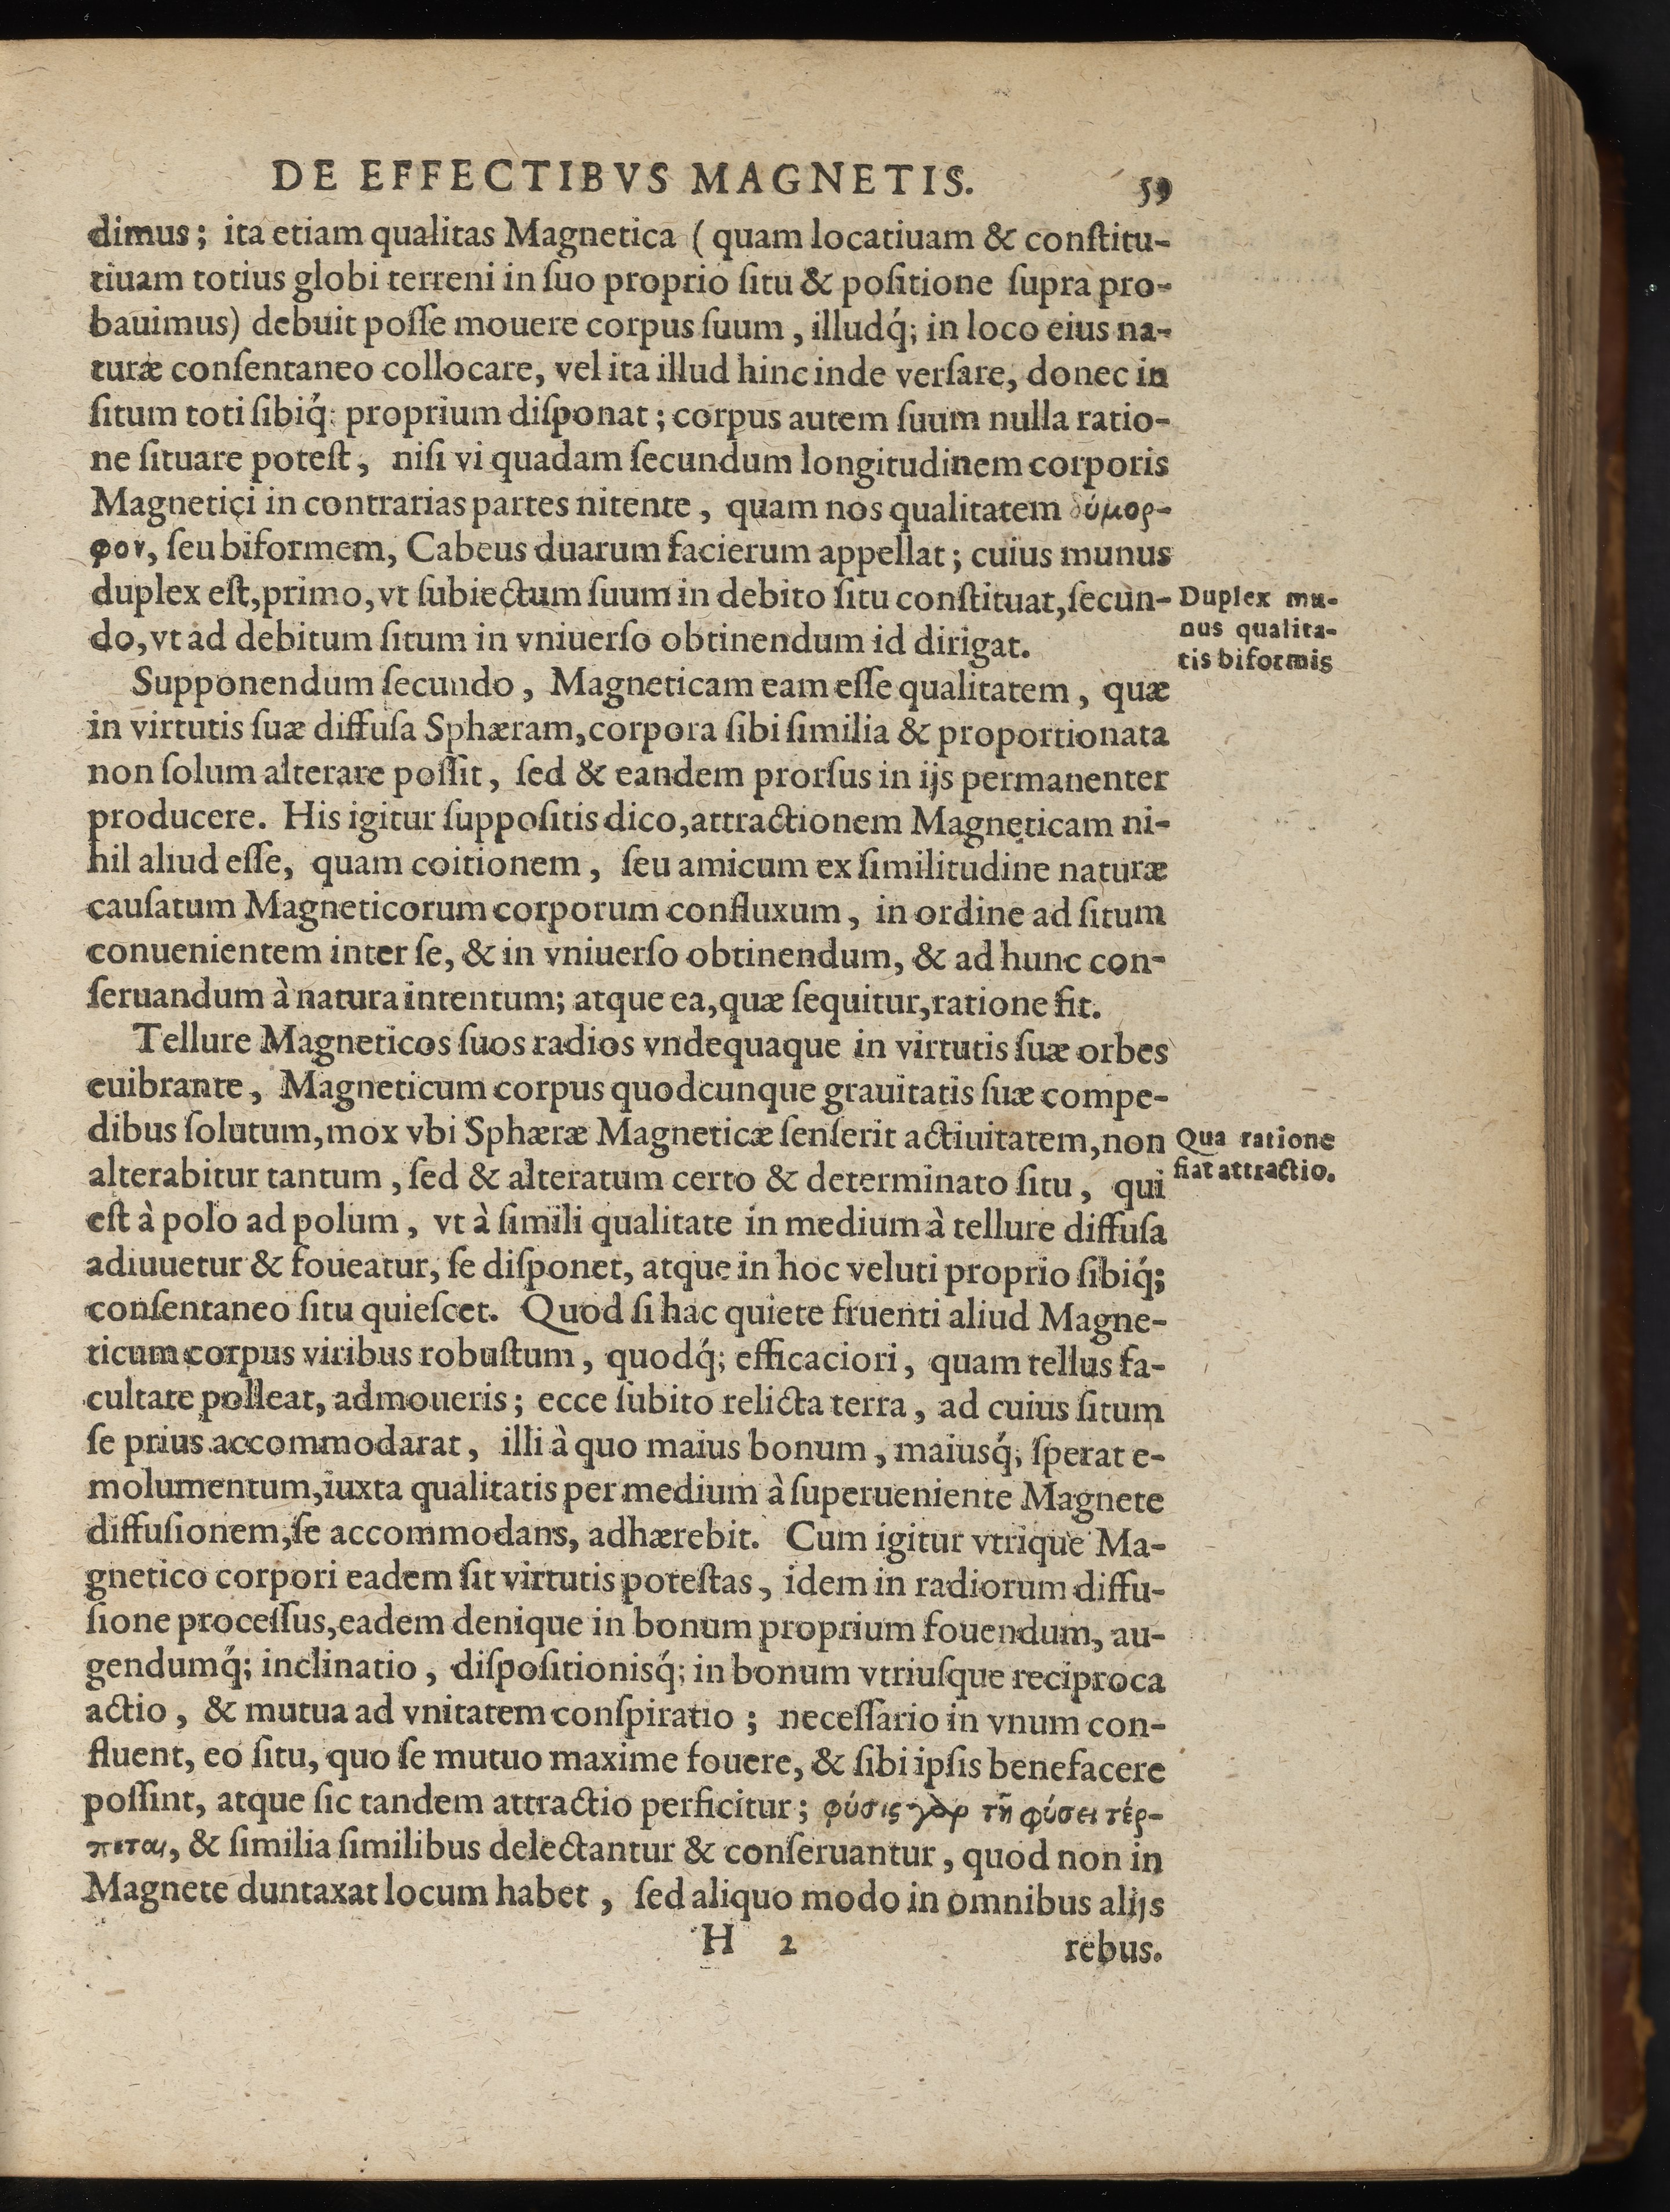 DE EFFECTIBVS MAGNETIS. 59
dimus; ita etiam qualitas Magnetica (quam locatiuam & conſtitu-
tiuam totius globi terreni in ſuo proprio ſitu & poſitione ſupra pro-
bauimus) debuit poſſe mouere corpus ſuum, illudq́; in loco eius na-
turæ conſentaneo collocare, vel ita illud hinc inde verſare, donec in
ſitum toti ſibiq́; proprium diſponat; corpus autem ſuum nulla ratio-
ne ſituare poteſt, niſi vi quadam ſecundum longitudinem corporis
Magnetici in contrarias partes nitente, quam nos qualitatem δύμορ-
φον, ſeu biformem, Cabeus duarum facierum appellat; cuius munus
duplex eſt, primo, vt ſubiectum ſuum in debito ſitu conſtituat, ſecun-
do, vt ad debitum ſitum in vniuerſo obtinendum id dirigat.
Duplex mu-
nus qualita-
tis biformis
Supponendum ſecundo, Magneticam eam eſſe qualitatem, quæ
in virtutis ſuæ diffuſa Sphæram, corpora ſibi ſimilia & proportionata
non ſolum alterare poſſit, ſed & eandem prorſus in ijs permanenter
producere. His igitur ſuppoſitis dico, attractionem Magneticam ni-
hil aliud eſſe, quam coitionem, ſeu amicum ex ſimilitudine naturæ
cauſatum Magneticorum corporum confluxum, in ordine ad ſitum
conuenientem inter ſe, & in vniuerſo obtinendum, & ad hunc con-
ſeruandum à natura intentum; atque ea, quæ ſequitur, ratione fit.
Tellure Magneticos ſuos radios vndequaque in virtutis ſuæ orbes
euibrante, Magneticum corpus quodcunque grauitatis ſuæ compe-
dibus ſolutum, mox vbi Sphæræ Magneticæ ſenſerit actiuitatem, non
alterabitur tantum, ſed & alteratum certo & determinato ſitu, qui
Qua ratione
fiat attractio.
eſt à polo ad polum, vt à ſimili qualitate in medium à tellure diffuſa
adiuuetur & foueatur, ſe diſponet, atque in hoc veluti proprio ſibiq́;
conſentaneo ſitu quieſcet. Quod ſi hac quiete fruenti aliud Magne-
ticum corpus viribus robuſtum, quodq́; efficaciori, quam tellus fa-
cultate polleat, admoueris; ecce ſubito relicta terra, ad cuius ſitum
ſe prius accommodarat, illi à quo maius bonum, maiusq́; ſperat e-
molumentum, iuxta qualitatis per medium à ſuperueniente Magnete
diffuſionem, ſe accommodans, adhærebit. Cum igitur vtrique Ma-
gnetico corpori eadem ſit virtutis poteſtas, idem in radiorum diffu-
ſione proceſſus, eadem denique in bonum proprium fouendum, au-
gendumq́; inclinatio, diſpoſitionisq́; in bonum vtriuſque reciproca
actio, & mutua ad vnitatem conſpiratio; neceſſario in vnum con-
fluent, eo ſitu, quo ſe mutuo maxime fouere, & ſibi ipſis benefacere
poſſint, atque ſic tandem attractio perficitur; φύσις γὰρ τῇ φύσει τέρ-
πεται, & ſimilia ſimilibus delectantur & conſeruantur, quod non in
Magnete duntaxat locum habet, ſed aliquo modo in omnibus alijs
H 2 rebus.